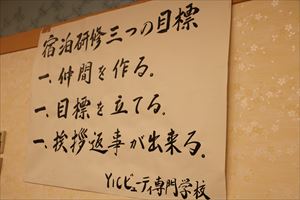 宿泊研修三つの目標
一、仲間を作る。
一、目標を立てる。
一、挨拶返事が出来る。
YICビューティ専門学校